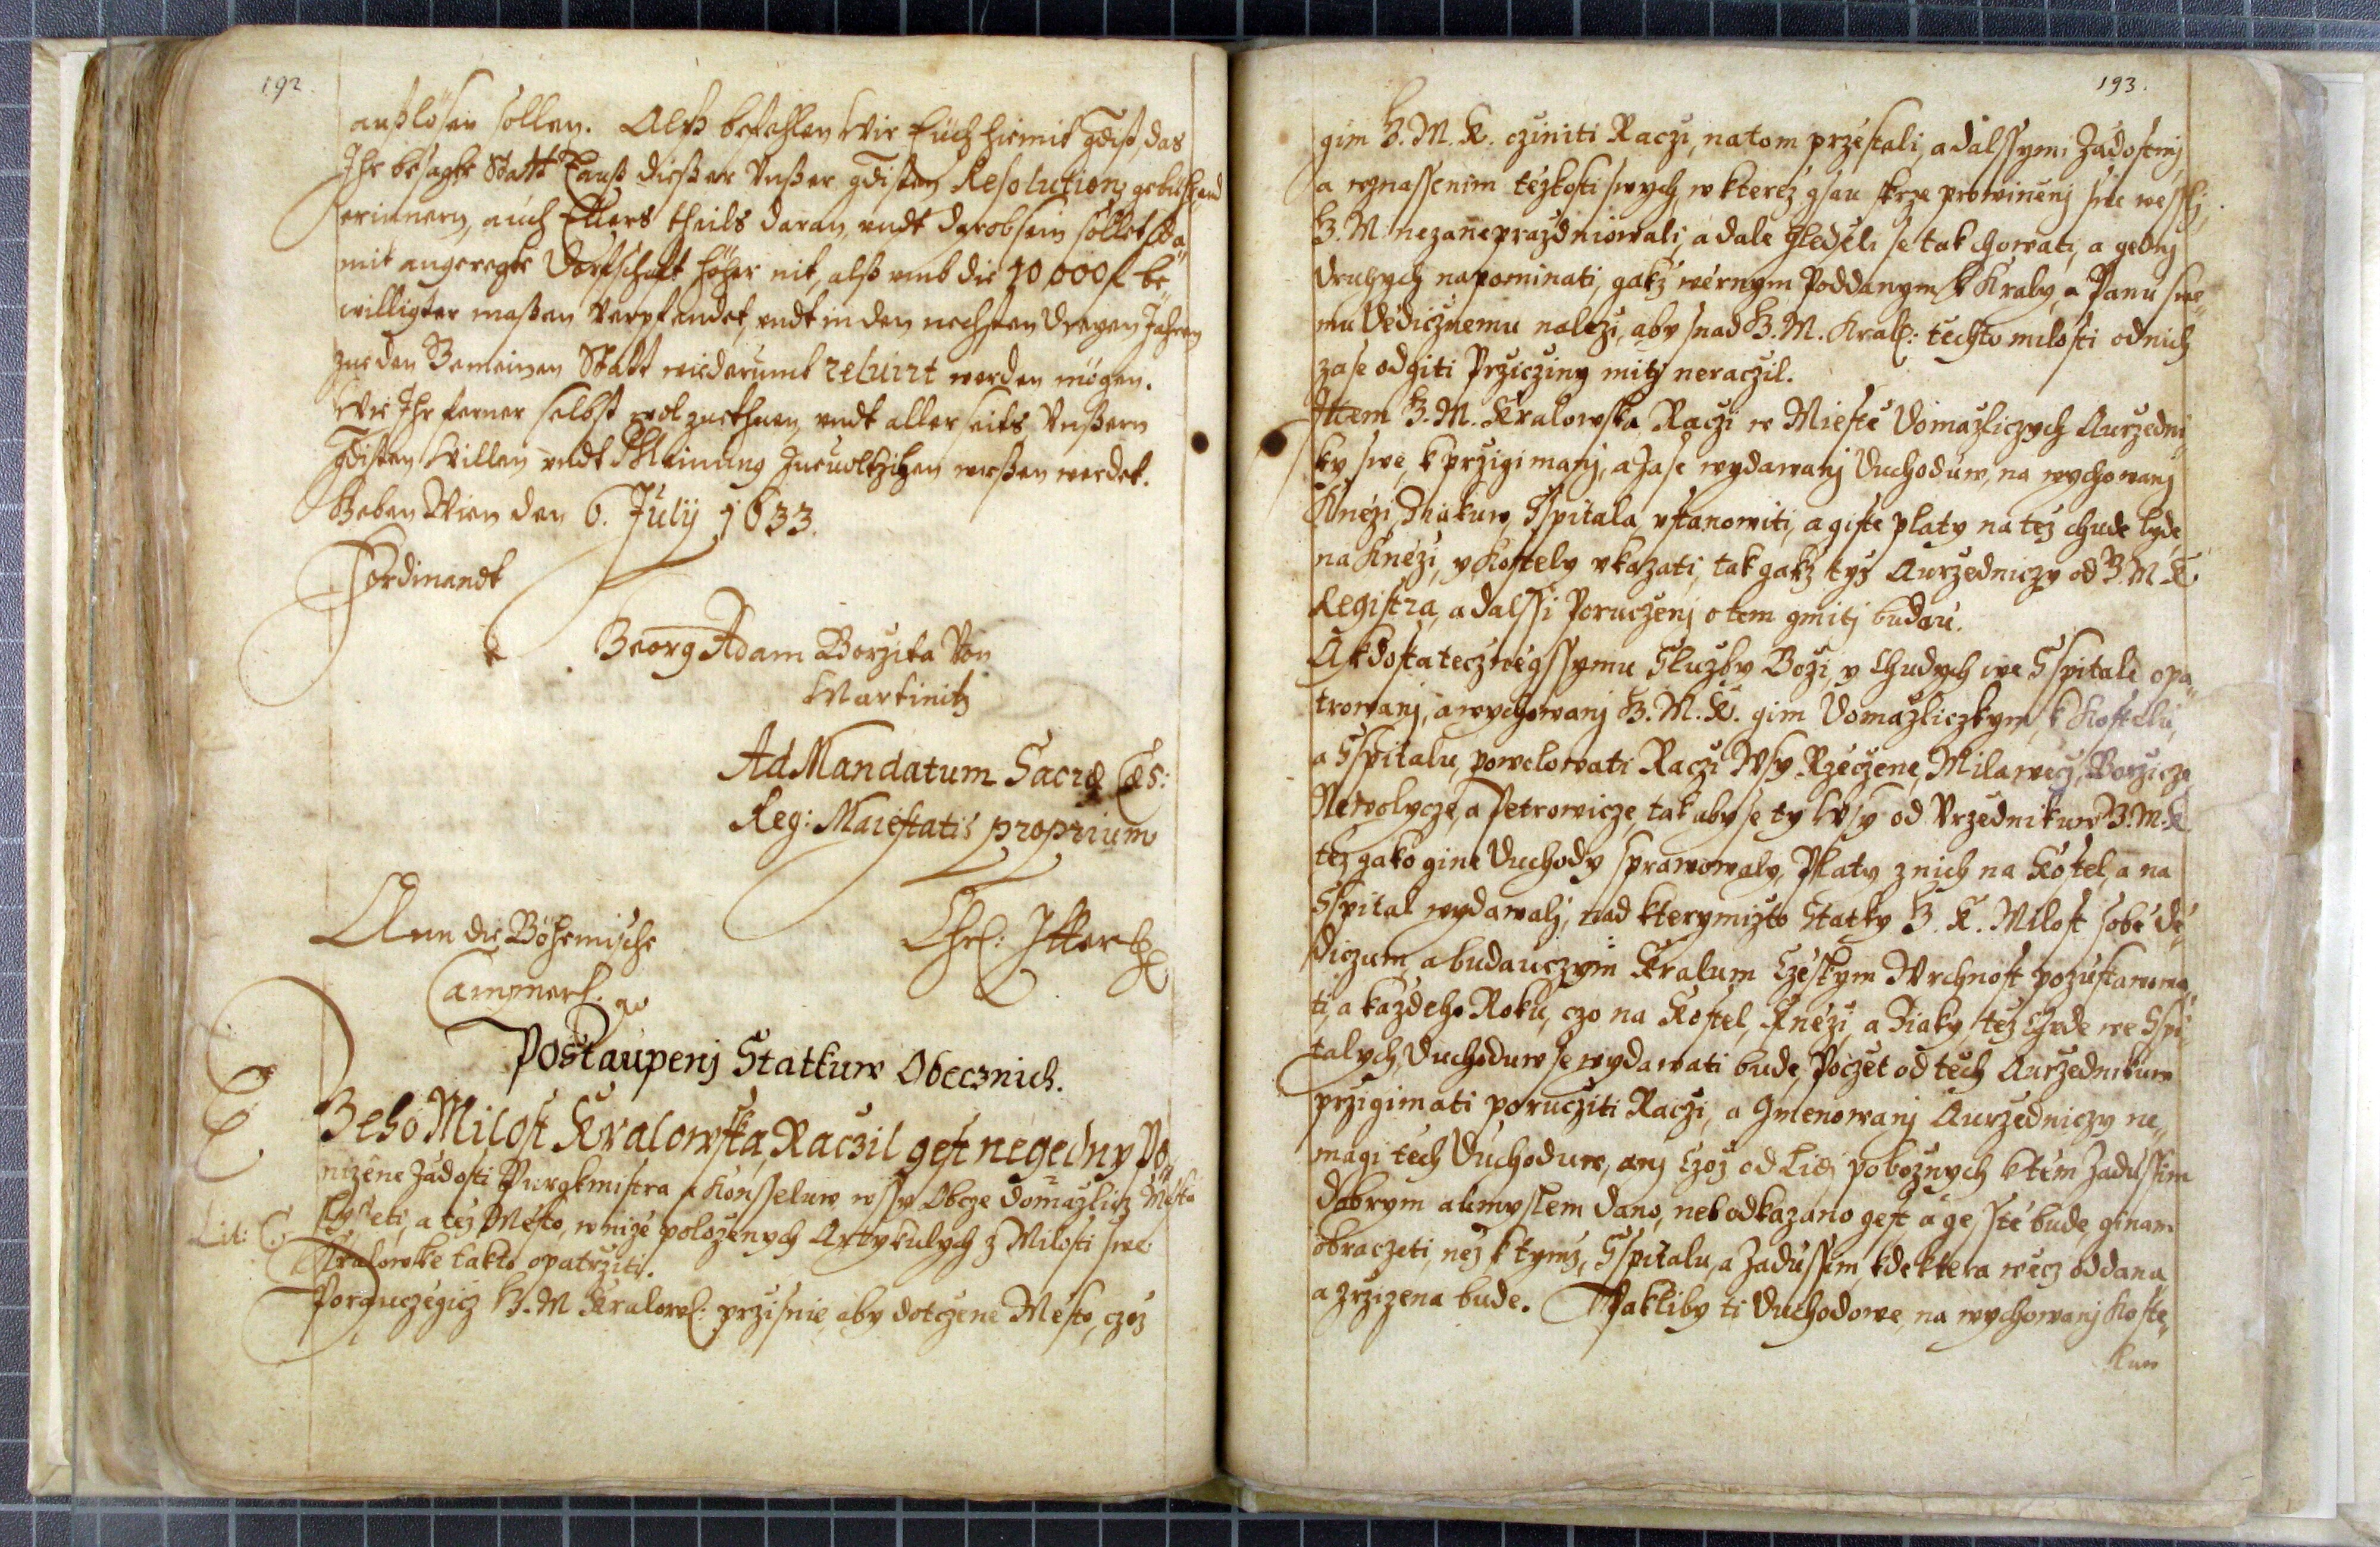 192.
außlösen sollen. Alß befehlen Wir Euch hiemit gdist, das
Ihr besagte Statt Tauß dießer Vnßer gdisten Resolution gebührend
erinnern, auch Eüers theils daran, vndt darob sein sollet, da„
mit angeregte Dorfschaft höher nit, alß vmb die 10,000 f be„
willigter maßen Verpfendet, vndt in den nechsten dreyen Jahren
zue den Gemeinen Statt wiederumb reluirt werden mögen.
Wie Ihr ferner selbst wol zuethuen, vndt allerseits Vnßern
gdisten Willen vndt Meinung Zueuoltzihen wißen werdet.
Geben Wien den 6. July 1633.
Ferdinandt
Georg Adam Borzita Von
Martinitz
Ad Mandatum Sacræ Cæs:
Reg: Maiestatis proprium
Ann die Böhemische
Cammer
Postaupenj Statkuw Obecznich.
Geho Milost Kralowska, Raczil gest negedny Po„
nizene Zadosti Purgkmistra a Konsseluw, wssy Obcze Domazlicz Mesta
slysseti, a tez Mesto, w nize polozenych Artykulych z Milosti swe
Lit: C.
Kralowske takto opatrziti.
Poruczegicz G. M Kralows: przisnie, aby dotczene Mesto, czoz
193.
gim G. M. K. cziniti Raczi, na tom przestali, a dalssymi Zadostmj,
a wznassenim tezkosti swych, w kterez gsau skrze prowinenj swe wessli,
G. M. nezaneprazdniowali, a dale hledeli se tak chowati, a gedny
druhych napominati, gakz wernym Poddanym k Kraly, a Panu swe„
mu Dedicznemu nalezi, aby snad G. M. Kral: techto milosti od nich
zase odgiti Prziczziny miti neraczil.
Item G. M. Kralowska Raczi w Mieste Domazliczych Aurzedni„
ky swe, k przigimanj, a zase wydawanj Duchoduw, na wychowanj
Knezi, Ziakuw, Sspitala vstanowiti, a giste platy na tez chude lyde,
na Knezi, y Kostely vkazati, tak gakz tyz Aurzedniczy od G. M. K
Registra, a dalssi Poruczenj o tom gmitj budau.
A k dostatecznegssymu Sluzby Bozi, y Chudych we Sspitale opa„
trowanj, a wychowanj G. M. K. gim Domazliczkym, k Kostelu,
a Sspitalu, powolowati Raczi Wsy Rzeczene, Milawecz, Borzicze,
Newolycze, a Petrowicze, tak aby se ty Wsy od Vrzednikuw G. M. K
tez gako gine Duchody sprawowaly, Platy z nich na Kostel, a na
Sspital wydawalj, nad kterymizto Statky G. K. Milost sobe de„
diczum, a budauczym Kralum Czeskym Wrchnost pozustawowa„
ti, a kazdeho Roku, czo na Kostel, Knezi, a Ziaky, tez Chude we Sspi„
talych, Duchoduw se wydawati bude, Poczet od tech Aurzednikuw
przigimati porucziti Raczi, a Gmenowanj Aurzedniczy ne„
magi tech Duchoduw, anj Czoz od Lidi poboznych k tem Zadussim
dobrym aumyslem dano, neb odkazano gest, a gesste bude, ginam
obraczeti, nez k tymz, Sspitalu, a Zadussim, kde ktera wecz oddana
a zrzizena bude. Pakliby ti Duchodowe, na wychowanj Koste„
luw